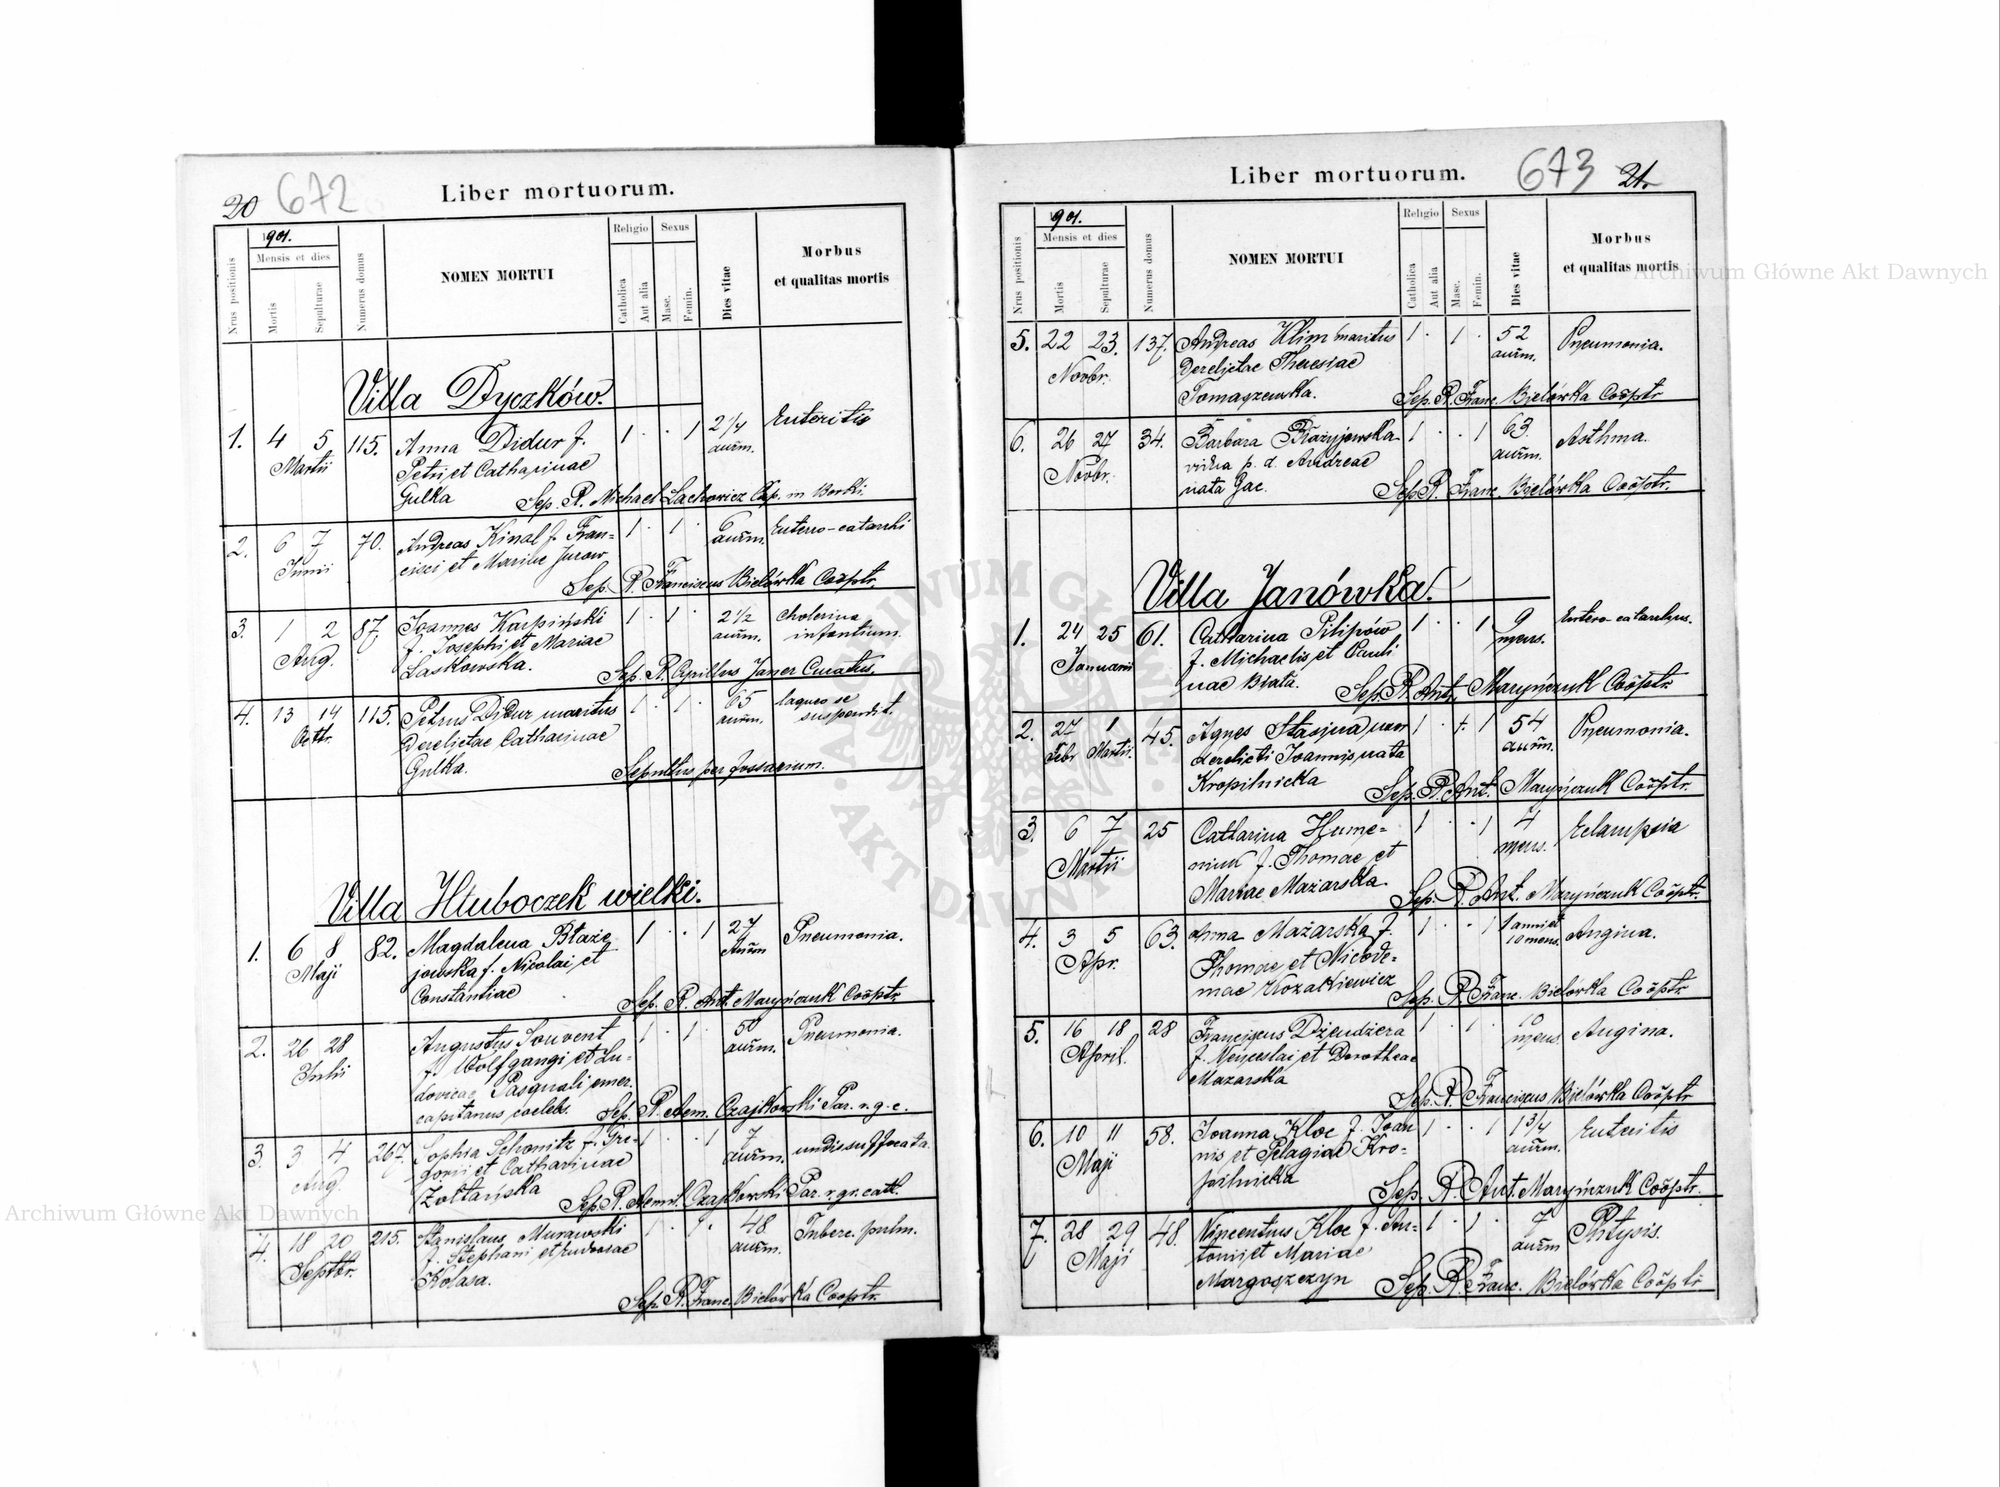 20 672 Liber mortuorum.
Nrus positionis
1901.
Mensis et dies
Mortis
Sepulturae
Numerus domus
NOMEN MORTUI
Religio
Catholica
Aut alia
Sexus
Masc.
Femin.
Dies vitae
Morbus
et qualitas mortis
Villa Dyczków.
1. 4 5 115. Anna Didur f. 1 . . 1 2 1/4 Enteritis
Martii Petri et Catharinae annm.
Gulka Sep. R. Michael Lachowicz Cap. in Borki
2. 6 7 70. Andreas Kinal f. Fran= 1 . 1 . 6 Entero-catarrhi
Junii cisci et Mariae Jurow annm.
Sep. R. Franciscus Bielówka Coöptr.
3. 1 2 87. Joannes Karpiński 1 . 1 . 2 1/2 Cholerina
Aug. f. Josephi et Mariae annm. infantium.
Laskowska. Sep. R. Cyrillus Janer Curatus.
4. 13 14 115. Petrus Didur maritus 1 . 1 . 65 laqueo se
Octbr. derelictae Catharinae annm. suspendit.
Gulka. Sepultus per fossarium.
Villa Hluboczek wielki.
1. 6 8 82. Magdalena Błaże 1 . . 1 27 Pneumonia.
Maji jowska f. Nicolai et annm
Constantiae Sep. R. Ant. Maryńczuk Coöptr.
2. 26 28 Augustus Souvent 1 . 1 . 50 Pneumonia.
Julii f. Wolfgangi et Lu- annm.
dovicae Pasquali emer.
capitanus coelebs. Sep. R. Aem. Czajkowski Par. r. g. c.
3. 3 4 267. Sophia Schmitz f. Gre- 1 . . 1 7 undis suffocata.
Aug. gorii et Catharinae annm.
Żołtańska Sep. R. Aemil. Czajkowski Par. r. gr. cath.
4. 18 20 215. Stanislaus Murawski 1 . 1 . 48 Tuberc. pulm.
Septbr. f. Stephani et annm.
Kolasa.
Sep. R. Franc. Bielówka Cooptr.
Liber mortuorum. 673 21.
Nrus positionis
1901.
Mensis et dies
Mortis
Sepulturae
Numerus domus
NOMEN MORTUI
Religio
Catholica
Aut alia
Sexus
Masc.
Femin.
Dies vitae
Morbus
et qualitas mortis
5. 22 23. 137. Andreas Klim maritus 1 . 1 . 52 Pneumonia.
Novbr. derelictae Theresiae annm.
Tomaszewska. Sep. R. Franc. Bielówka Coöptr
6. 26 27 34. Barbara Błażyjewska 1 . . 1 63 Asthma.
Novbr. vidua p. d. Andreae annm.
nata Gac. Sep. R. Franc. Bielówka Coöptr.
Villa Janówka.
1. 24 25 61. Catharina Pilipów 1 . . 1 9 Entero-catarrhus.
Januarii f. Michaelis et Pauli mens.
nae Biała. Sep. R. Ant. Maryńczuk Coöptr.
2. 27 1 45. Agnes Stasjna uxor 1 . . 1 54 Pneumonia.
Febr. Martii. derelicti Joannis nata annm.
Kropilnicka Sep. R. Ant. Maryńczuk Coöptr.
3. 6 7 25 Catharina Hume= 1 . . 1 4 Eclampsia
Martii niuk f. Thomae et mens.
Mariae Mazarska. Sep. R. Ant. Maryńczuk Coöptr.
4. 3 5 63. Anna Mażarska f. 1 . . 1 1 anni et Angina.
Apr. Thomae et Nicode= 10 mens.
mae Kozakiewicz Sep. R. Franc. Bielówka Coöptr
5. 16 18 28 Franciscus Dżendżera 1 . 1 . 10 Angina.
April. f. Venceslai et Dorotheae mens.
Mazarska
Sep. R. Franciscus Bielówka Coöptr
6. 10 11 58. Joanna Kloc f. Joan 1 . . 1 1 3/4 Enteritis
Maji nis et Pelagiae Kro= annm.
pilnicka Sep. R. Ant. Maryńczuk Coöptr.
7. 28 29 48. Vincentius Kloc f. An= 1 . 1 . 7 Phtysis.
Maji tonii et Mariae annm
Margoszczyn Sep. R. Franc. Bielówka Coöptr
Archiwum Główne Akt Dawnych
Archiwum Główne Akt Dawnych
ARCHIWUM GŁÓWNE · AKT DAWNYCH ·